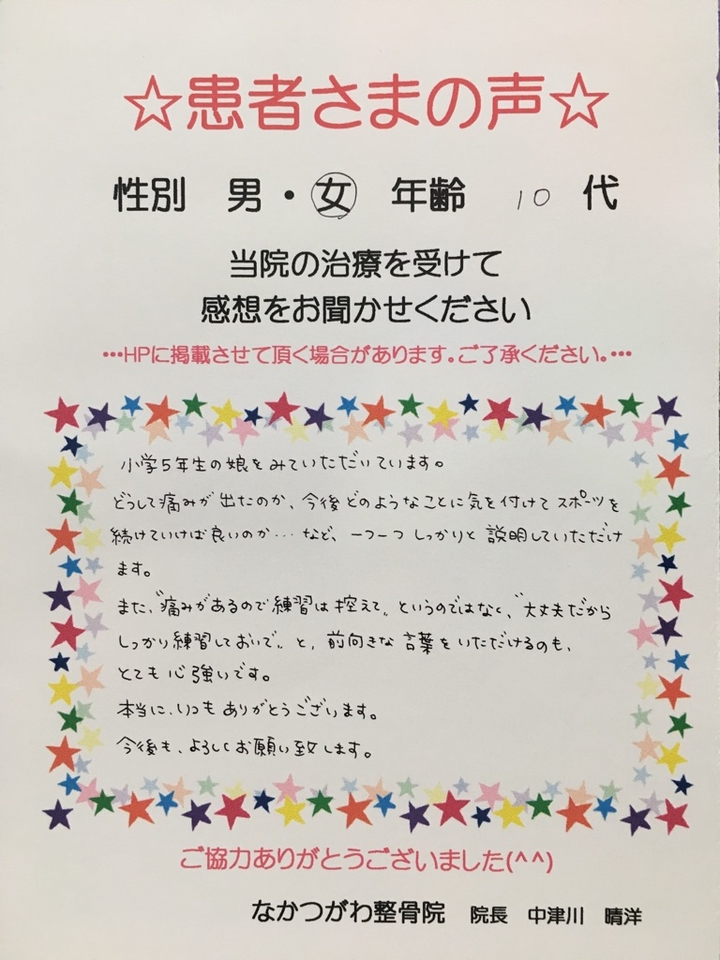 ☆患者さまの声☆
性別 男・女 年齢 10 代
当院の治療を受けて
感想をお聞かせください
…HPに掲載させて頂く場合があります。ご了承ください。…
小学5年生の娘をみていただいています。
どうして痛みが出たのか、今後どのようなことに気を付けてスポーツを
続けていけば良いのか…など、一つ一つしっかりと説明していただけ
ます。
また、〝痛みがあるので練習は控えて〟というのではなく、〝大丈夫だから
しっかり練習しておいで〟と、前向きな言葉をいただけるのも、
とても心強いです。
本当に、いつもありがとうございます。
今後も、よろしくお願い致します。
ご協力ありがとうございました(^^)
なかつがわ整骨院 院長 中津川 晴洋